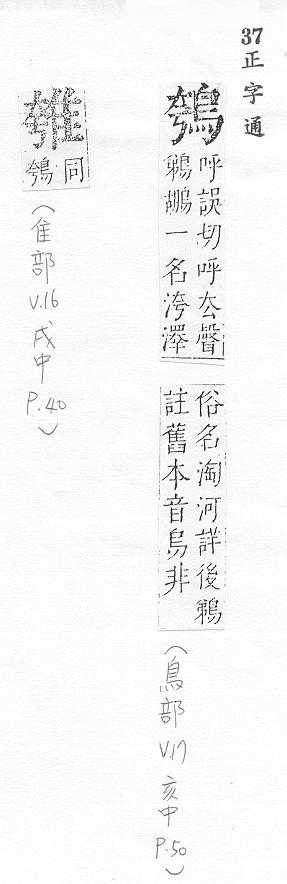 37 正字通
鴮
呼誤切呼去聲
鵜鶘一名洿澤
俗名淘河詳後鵜
註舊本音烏非
(鳥部 V.17 亥中 P.50)
同
(隹部 V.16 戌中 P.40)